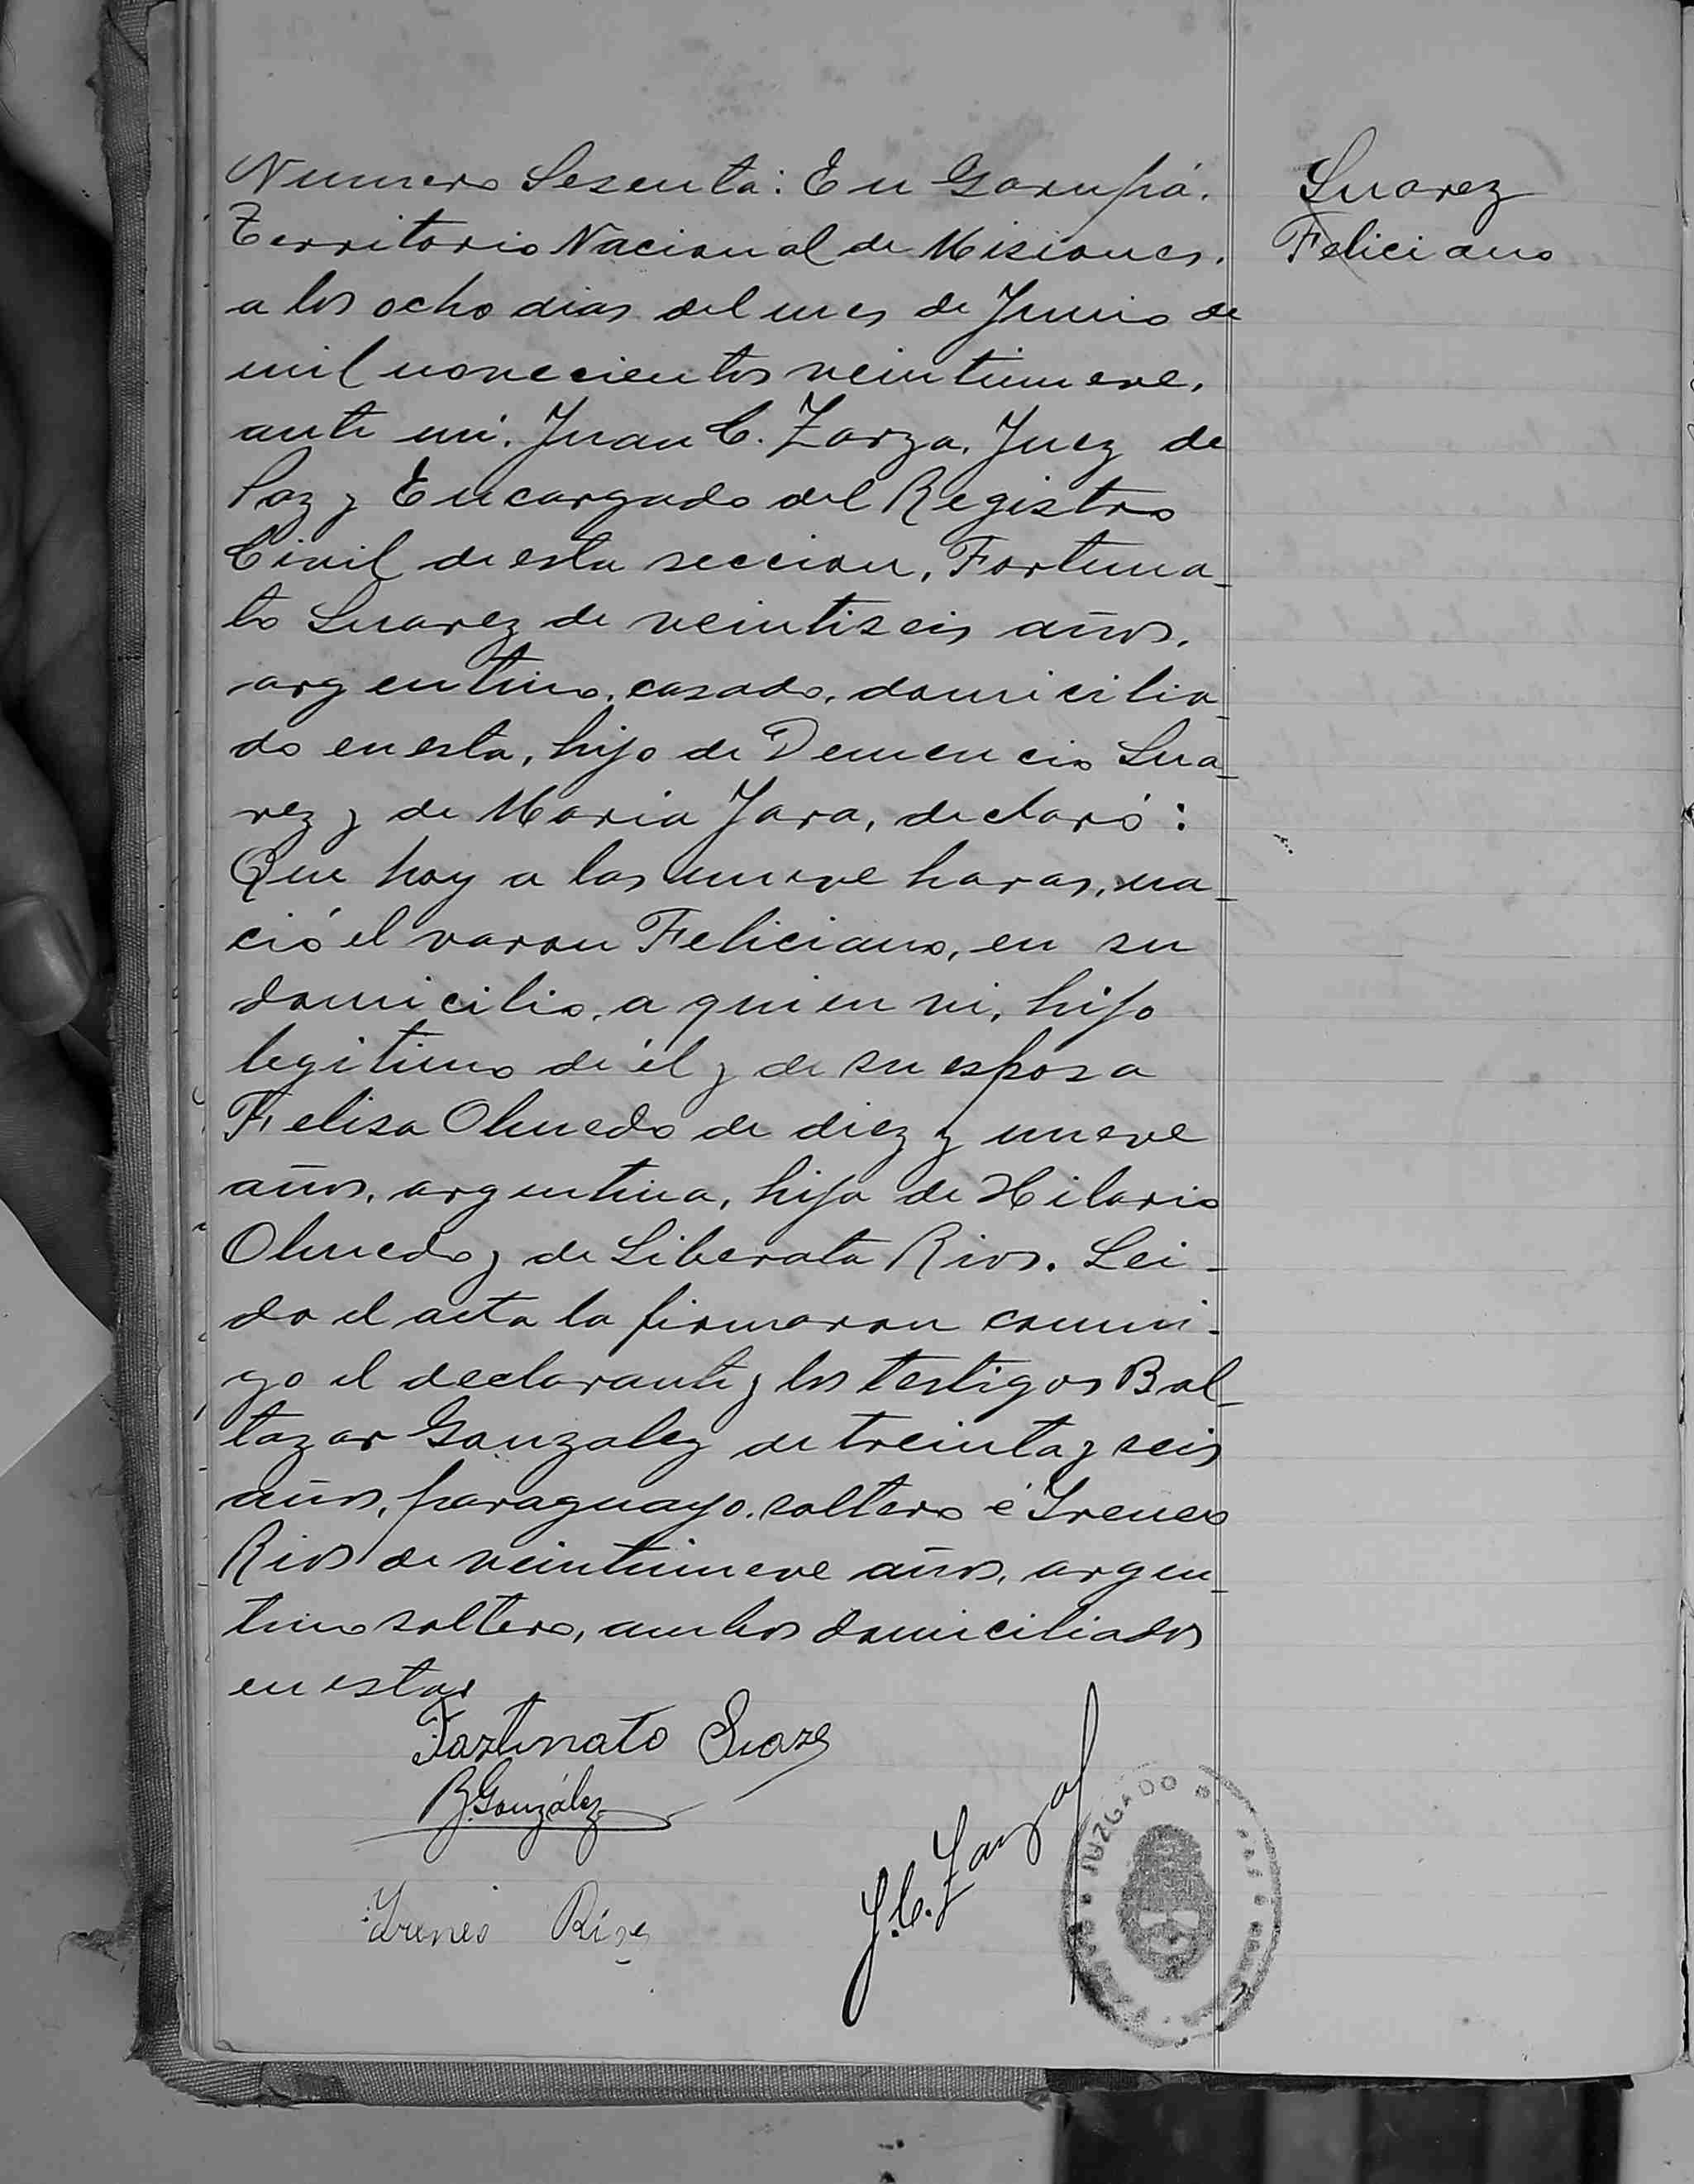 Numero Sesenta: En Garupá.
Territorio Nacional de Misiones.
a los ocho dias del mes de Junio de
mil novecientos veintinueve,
ante mi. Juan C. Zarza. Juez de
Paz y Encargado del Registro
Civil de esta seccion, Fortuna-
to Suarez de veintiseis años,
argentino, casado, domicilia-
do en esta, hijo de Demencio Sua-
rez y de Maria Jara, declaró:
Que hoy a las nueve horas, na-
ció el varon Feliciano, en su
domicilio, a quien vi, hijo
legitimo de él y de su esposa
Felisa Olmedo de diez y nueve
años, argentina, hija de Hilario
Olmedo y de Liberata Rios. Lei-
do el acta la firmaron conmi-
go el declarante y los testigos Bal-
tazar Gonzalez de treinta y seis
años, paraguayo, soltero é Ireneo
Rios de veintinueve años, argen-
tino soltero, ambos domiciliados
en esta.
Suarez
Feliciano
Fortunato Suarez
B. González
Ireneo Rios
J. C. Zarza
JUZGADO DE PAZ